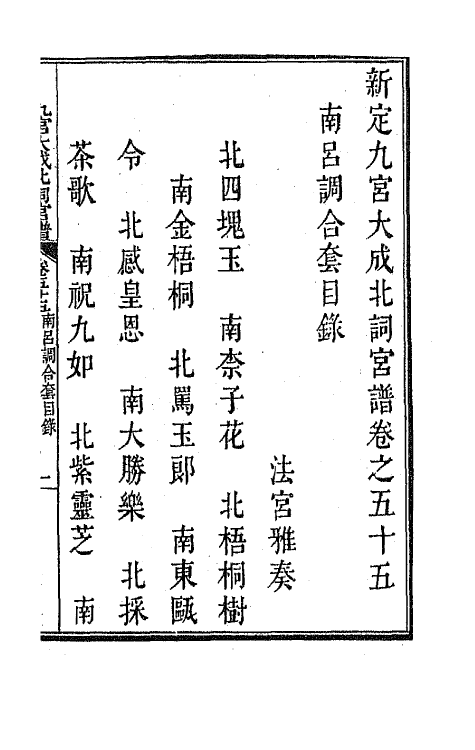 新定九宮大成北詞宮譜卷之五十五
南呂調合套目錄
法宮雅奏
北四塊玉　南柰子花　北梧桐樹
南金梧桐　北罵玉郎　南東甌
令　北感皇恩　南大勝樂　北採
茶歌　南祝九如　北紫靈芝　南
九宮大成北詞宮譜　卷五十五南呂調合套目錄　一